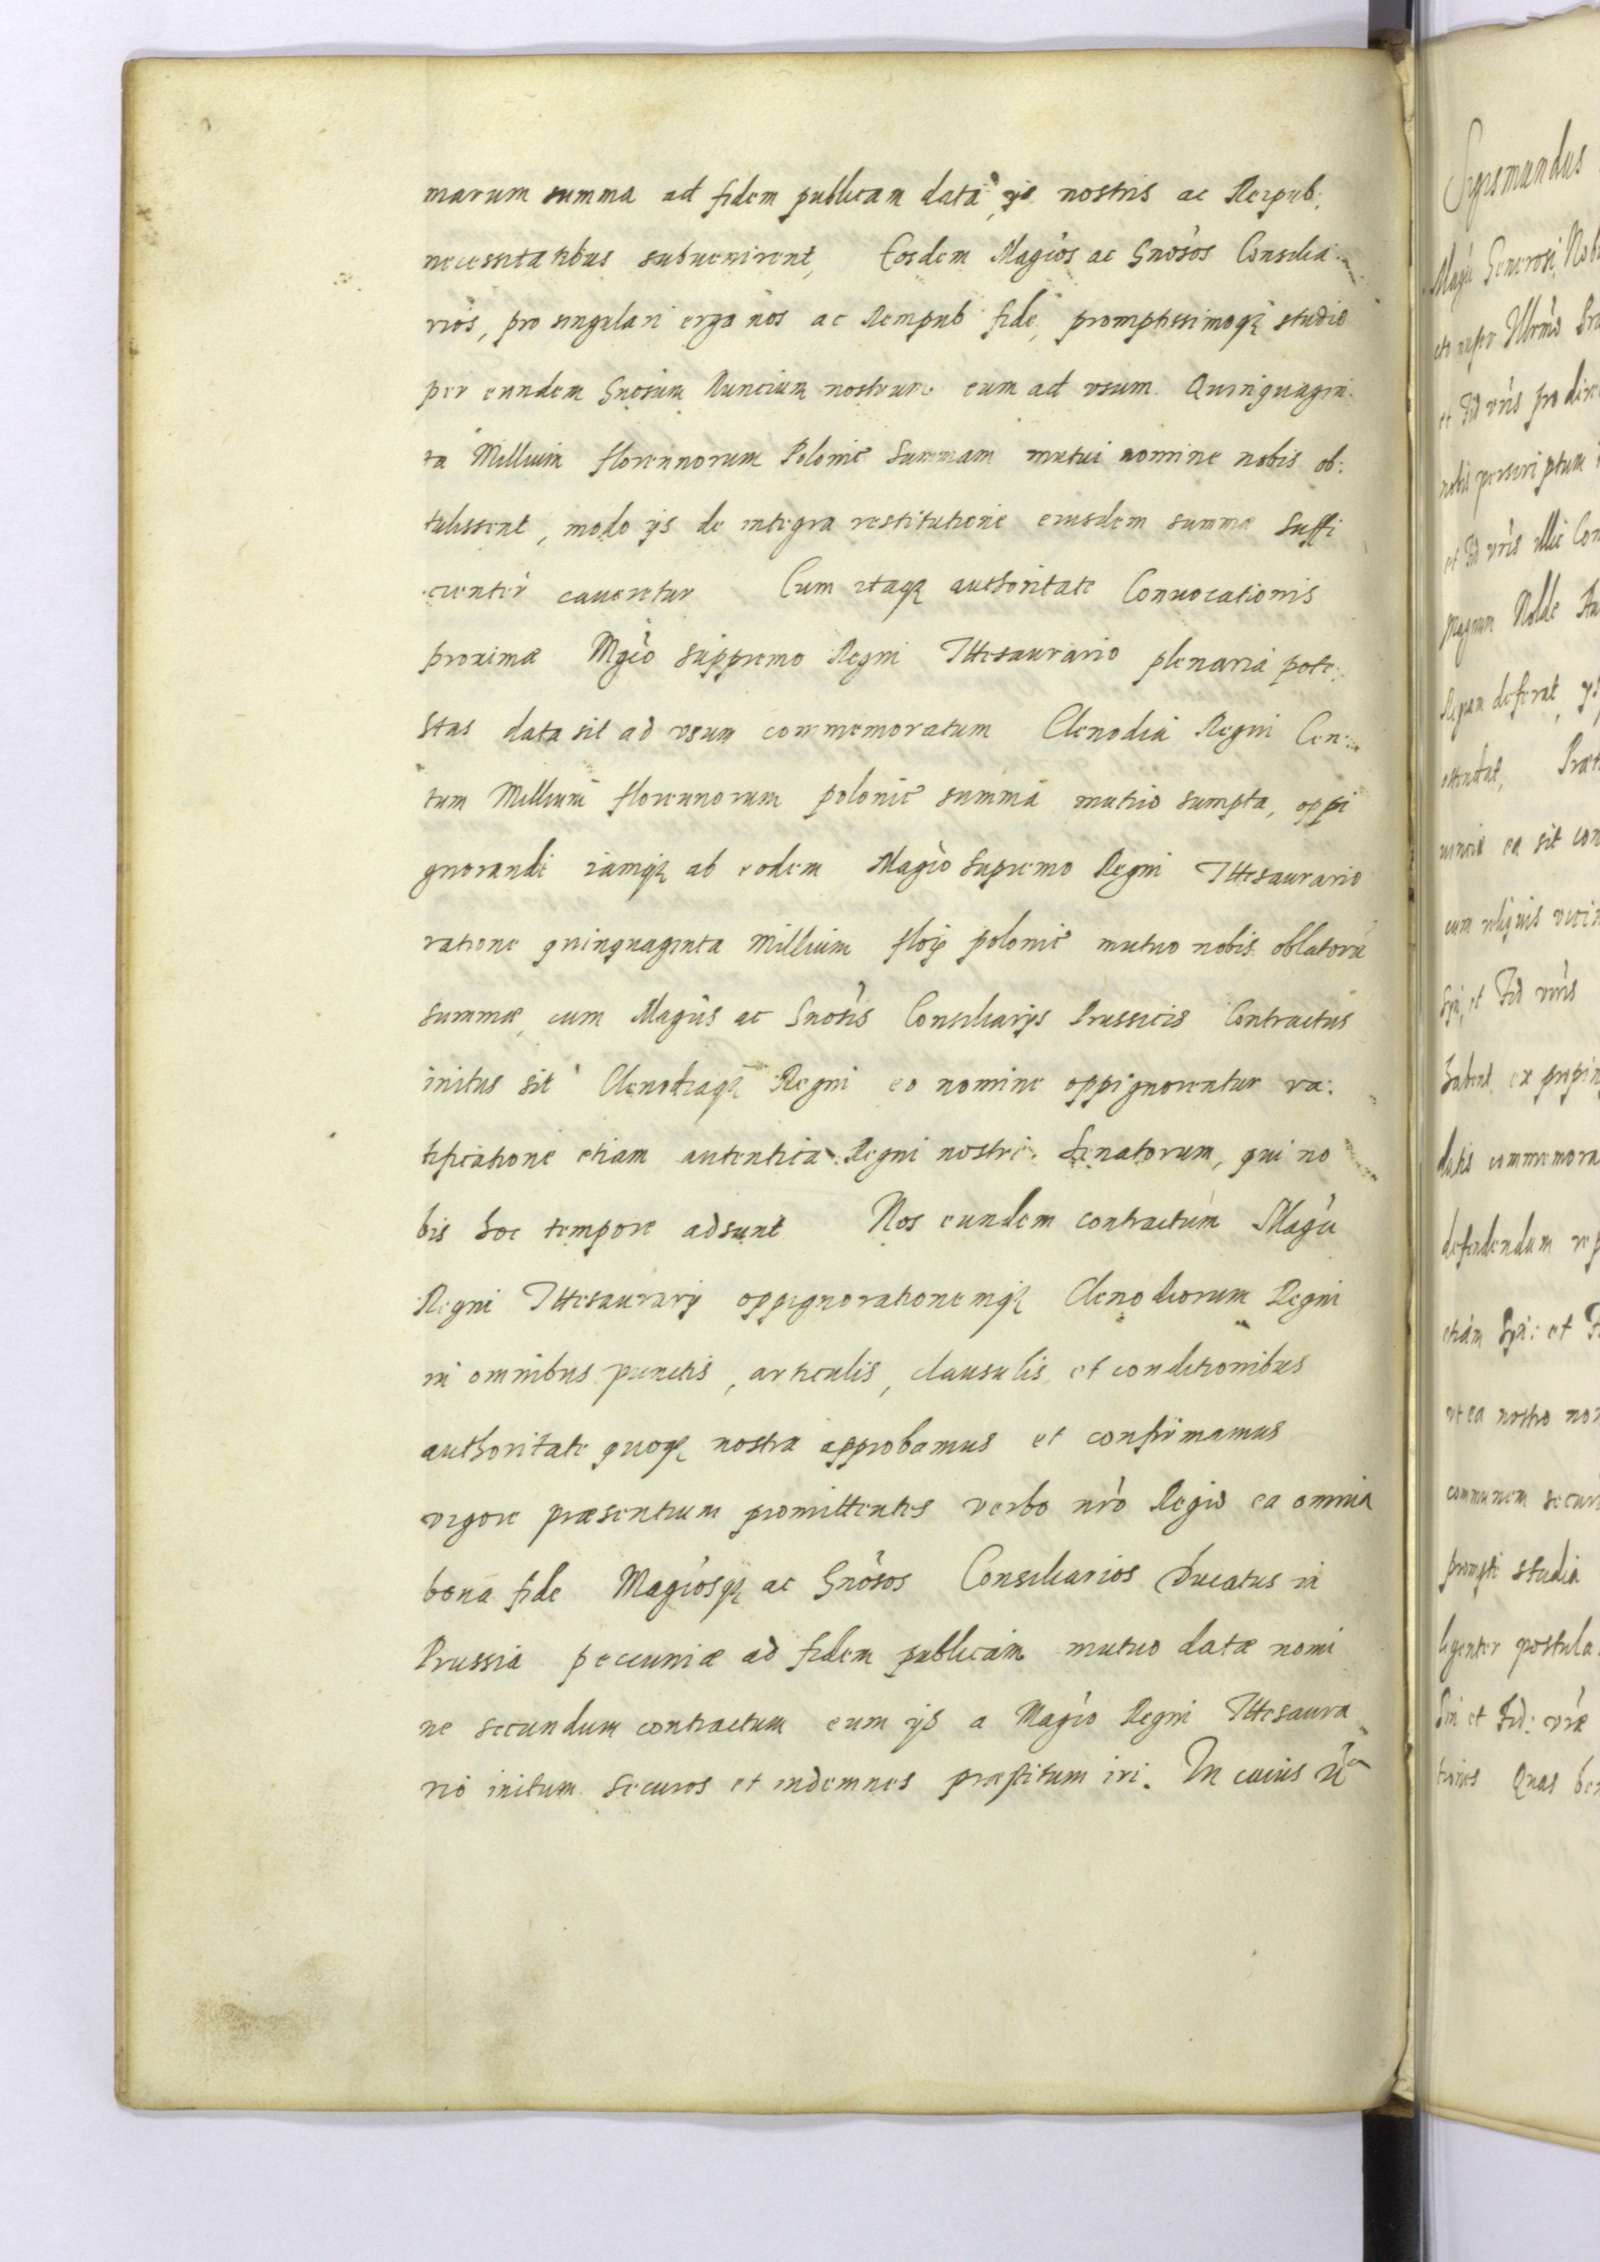 marum summa ad fidem publicam data, ijs nostris ac Reipub:
necessitatibus subuenirent, Eosdem Magcos ac Gnosos Consilia-
rios, pro singulari erga nos ac Rempub fide, promptissimoq studio
per eundem Gnosum Nuncium nostrum eum ad vsum Quinquagin-
ta Millium florennorum Polonic Summam mutui nomine nobis ob:
tulissent, modo ijs de integra restitutione eiusdem summæ suffi
cienter caueretur Cum itaq authoritate Conuocationis
proximæ Mgco suppremo Regni Thesaurario plenaria pote:
stas data sit ad vsum commemoratum Clenodia Regni Cen:
tum Millium florennorum polonic summa mutuo sumpta, oppi
gnorandi iamq ab eodem Magco Supremo Regni Thesaurario
ratione quinquaginta Millium flor polonic mutuo nobis oblatoru
summæ, cum Magcis ac Gnosis Consiliarijs Prussicis Contractus
initus sit Clenodiaq Regni eo nomine oppignorentur ra:
tificatione etiam autentica Regni nostri Senatorum, qui no
bis hoc tempore adsunt Nos eundem contractum Magci
Regni Thesaurarij oppignorationemq Clenodiorum Regni
in omnibus punctis, articulis, clausulis et conditionibus
authoritate quoq nostra approbamus et confirmamus
vigore præsentium promittentes verbo nro Regio ea omnia
bona fide Magcosq ac Gnosos Consiliarios Ducatus in
Prussia pecuniæ ad fidem publicam mutuo datæ nomi
ne secundum contractum cum ijs a Magco Regni Thesaura
rio initum securos et indemnes præstitum iri. In cuius
Sigismundus
Magci Generosi
et
nobis perscriptum
et Fid vris illic
Magnum Nolde
Regiam deferat,
ostendat,
ea sit
cum reliquis
et Fid vris
habent, ex
datis
defendendum
etiam et
vt ea nostro
communem
prompti studia
et Fid: vræ
Quas